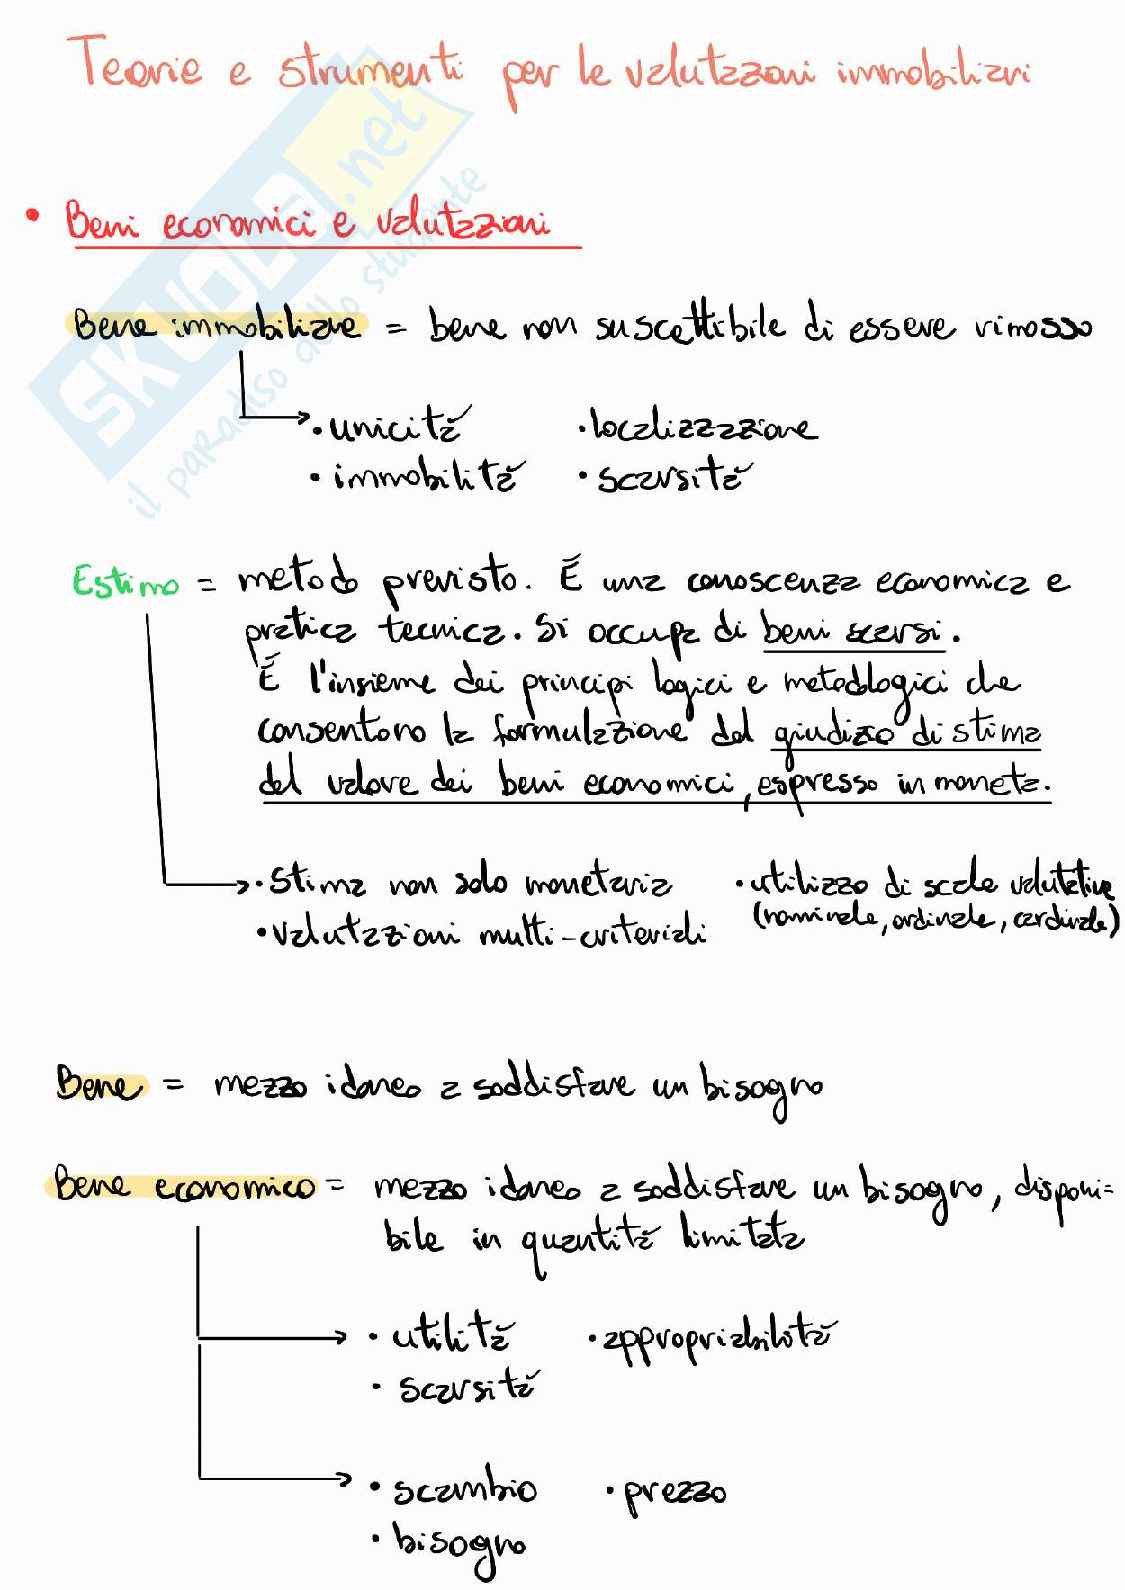 Teorie e strumenti per le valutazioni immobiliari
• Beni economici e valutazioni
Bene immobiliare = bene non suscettibile di essere rimosso
• unicità • localizzazione
• immobilità • scarsità
Estimo = metodo previsto. È una conoscenza economica e
pratica tecnica. Si occupa di beni scarsi.
È l'insieme dei principi logici e metodologici che
consentono la formulazione del giudizio di stima
del valore dei beni economici, espresso in moneta.
• stima non solo monetaria • utilizzo di scale valutative
• valutazioni multi-criteriali (nominale, ordinale, cardinale)
Bene = mezzo idoneo a soddisfare un bisogno
Bene economico = mezzo idoneo a soddisfare un bisogno, disponi=
bile in quantità limitata
• utilità • appropriabilità
• scarsità
• scambio • prezzo
• bisogno
SKUOLA.net
il paradiso dello studente